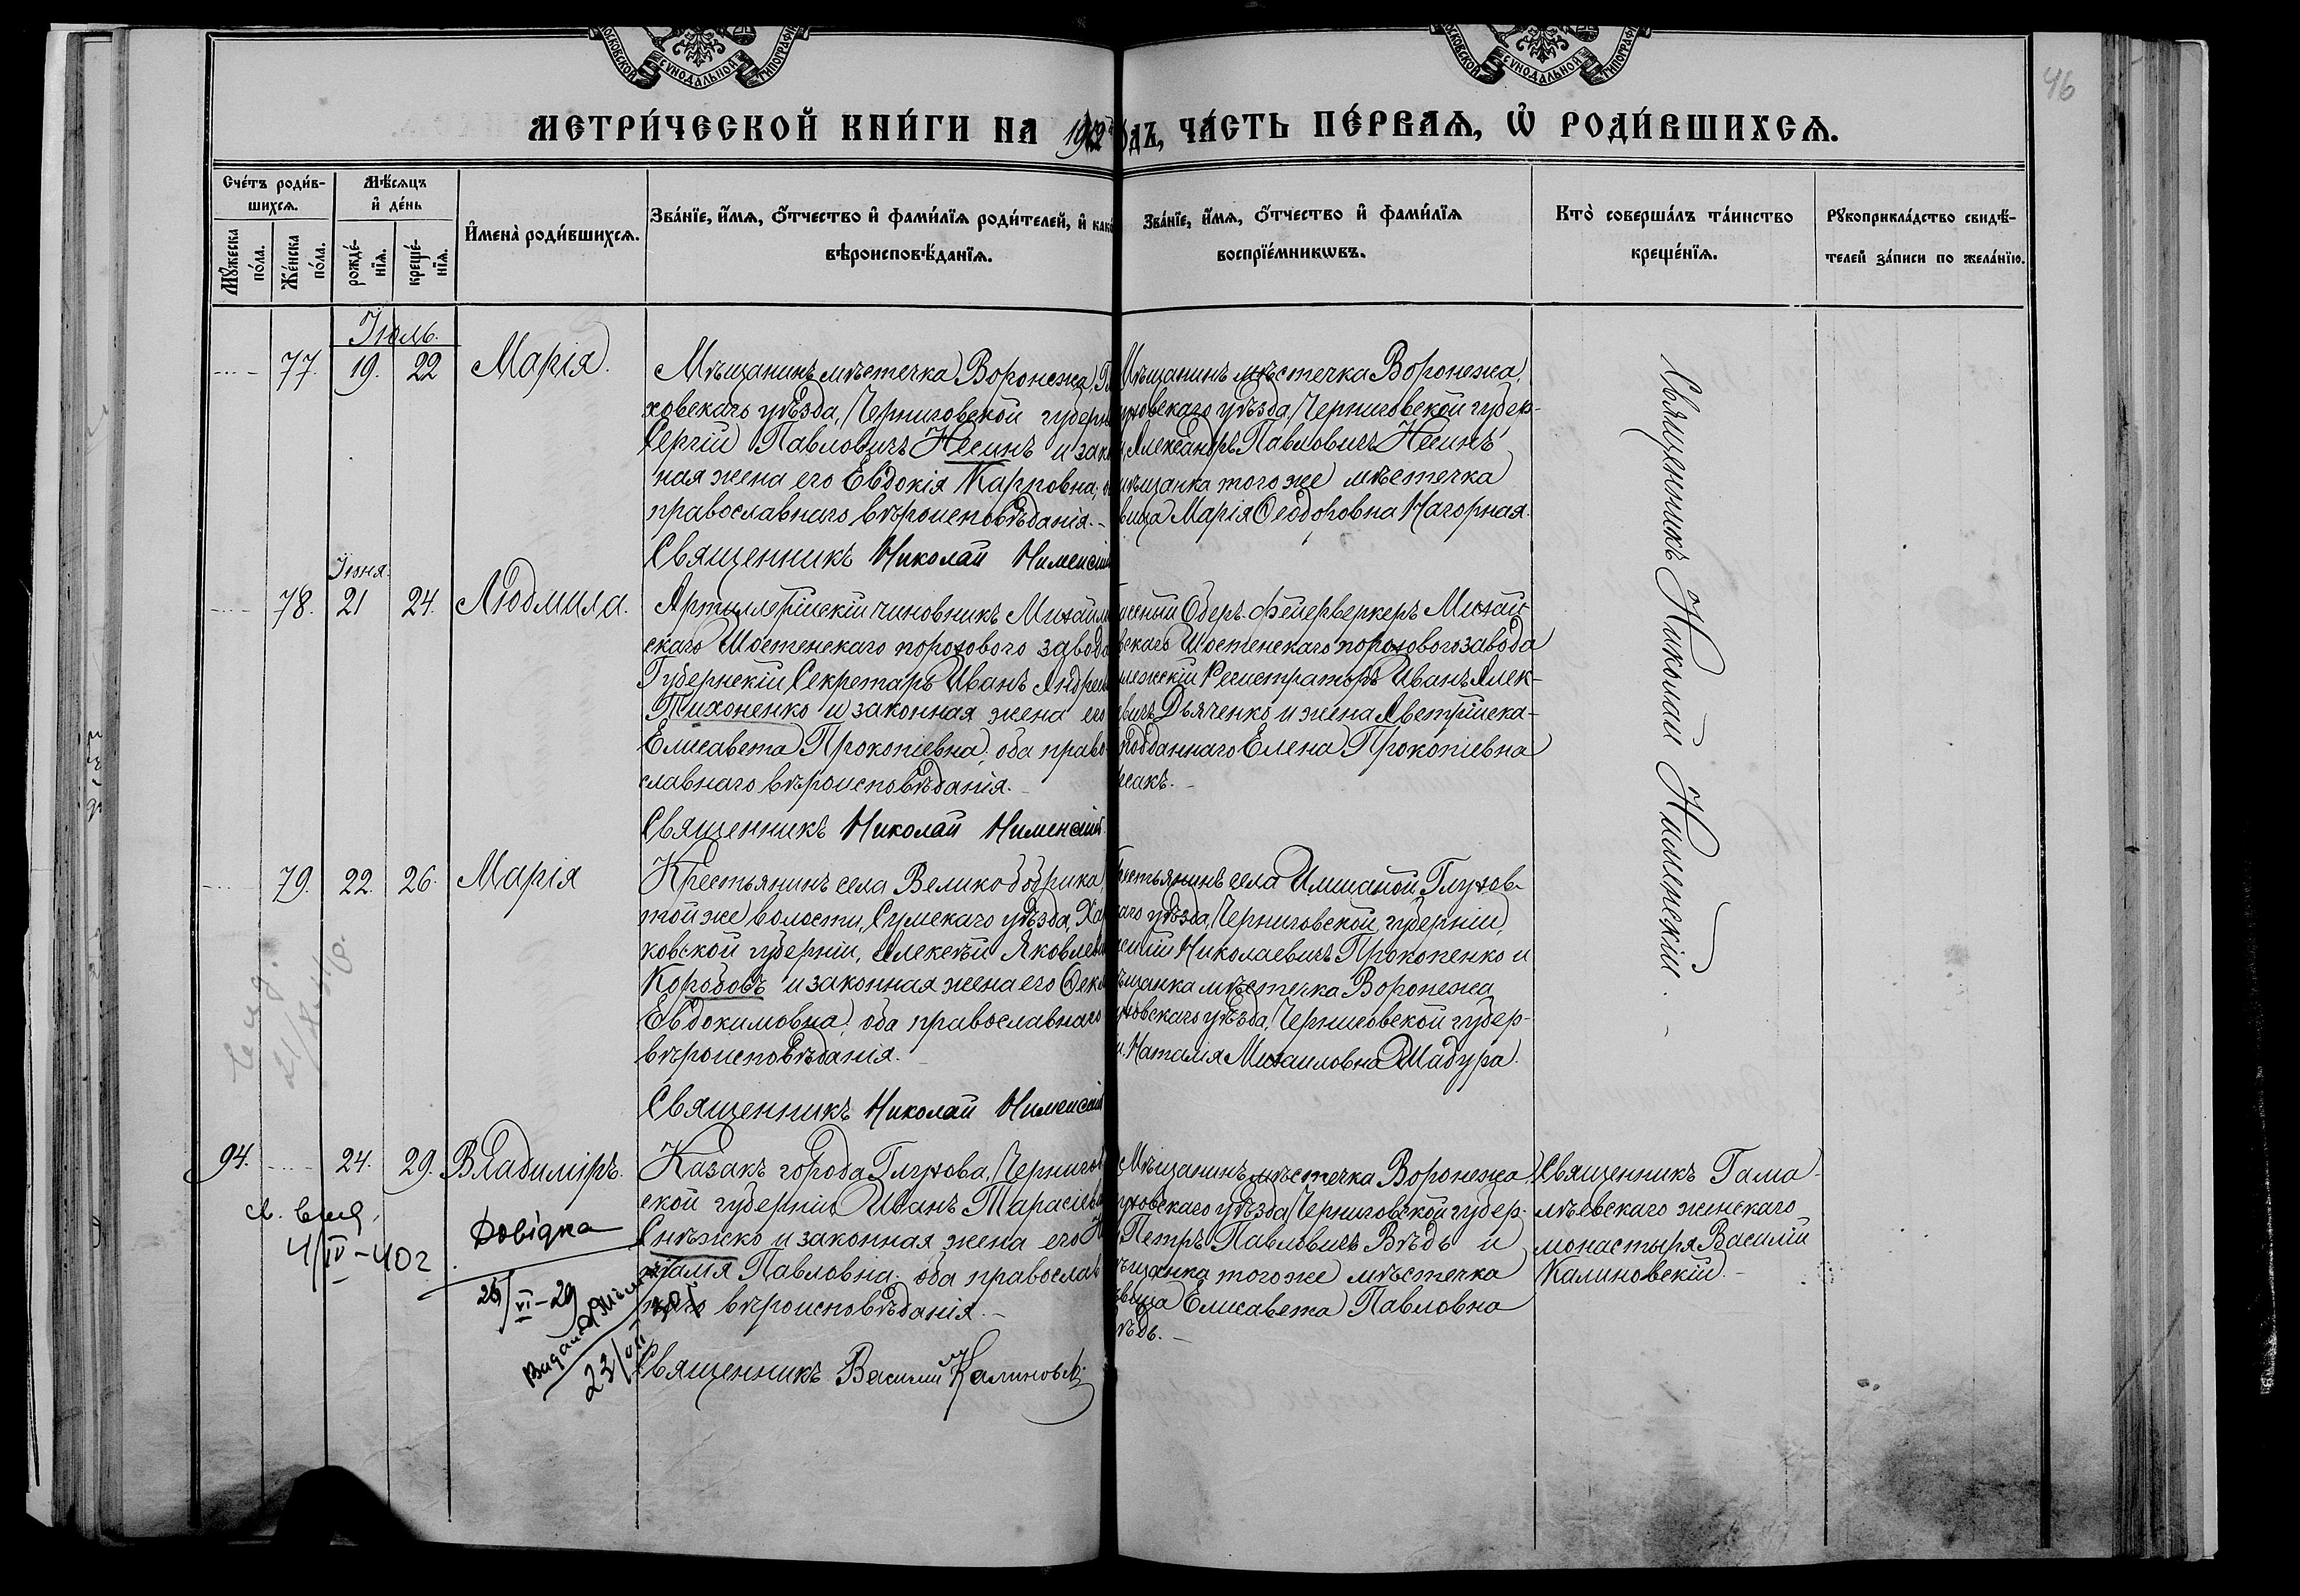 МОСКОВСКОЙ СѴНОДАЛЬНОЙ ТИПОГРАФІИ
МОСКОВСКОЙ СѴНОДАЛЬНОЙ ТИПОГРАФІИ
46
МЕТРИ́ЧЕСКОЙ КНИ́ГИ НА 1912 ГОДЪ, ЧА́СТЬ ПЕ́РВАѦ, Ѡ҆ РОДИ́ВШИХСѦ.
Сче́тъ роди́в-
шихсѧ.
Мѣ́сѧцъ
и҆ де́нь
Мꙋ́жеска
по́ла.
Же́нска
по́ла.
рожде́-
нїѧ.
креще́-
нїѧ.
И҆мена̀ роди́вшихсѧ.
Зва́нїе, и҆́мѧ, ѻ҆́тчество и҆ фами́лїѧ роди́телей, и҆ како
вѣроисповѣ́данїѧ.
Зва́нїе, и҆́мѧ, ѻ҆́тчество и҆ фами́лїѧ
воспрїе́мникѡвъ.
Кто̀ соверша́лъ та́инство
креще́нїѧ.
Рꙋкоприкла́дство свидѣ́-
телей за́писи по жела́нїю.
Іюль.
77. 19. 22 Марія.
Мѣщанинъ мѣстечка Воронежа, Глу
ховскаго уѣзда, Черниговской губерн
Сергій Павловичъ Несинъ и закон
ная жена его Евдокія Карповна, оба
православнаго вѣроисповѣданія.-
Священникъ Николай Нименскій
Мѣщанинъ мѣстечка Воронежа,
уховскаго уѣзда, Черниговской губер-
, Александръ Павловичъ Несинъ
мѣщанка того же мѣстечка
вица Марія Ѳеодоровна Нагорная.
Священникъ Николай Нименскій. -
Іюня
78. 21 24. Людмила.
Артиллерійскій чиновникъ Михайлов
скаго Шостенскаго порохового завода
Губернскій Секретарь Иванъ Андреев
Тихоненко и законная жена его
Елисавета Прокопіевна, оба право-
славнаго вѣроисповѣданія.-
Священникъ Николай Нименскій.
Оберъ-Фейерверкеръ Михай-
вскаго Шостенскаго порохового завода
лежскій Регистраторъ Иванъ Алек-
вичъ Дьяченко и жена Австрійска-
подданнаго Елена Прокопіевна
сакъ.-
79. 22. 26. Марія
Крестьянинъ села Великобобрика,
той же волости, Сумскаго уѣзда, Хар
ковской губерніи, Алексѣй Яковлев
Коробовъ и законная жена его Ѳекл
Евдокимовна, оба православнаго
вѣроисповѣданія.-
Священникъ Николай Нименскій
рестьянинъ села Имшаной, Глухов-
каго уѣзда, Черниговской губерніи,
Николаевичъ Прокопенко и
ѣщанка мѣстечка Воронежа
уховскаго уѣзда, Черниговской губер-
и. Наталія Михаиловна Шадура.
94. 24. 29. Владиміръ.
Казакъ города Глухова, Чернигов
ской губерніи Иванъ Тарасіев
Снѣжко и законная жена его На
талія Павловна, оба православ
наго вѣроисповѣданія.-
Священникъ Василий Калиновск
Мѣщанинъ мѣстечка Воронежа,
уховскаго уѣзда, Черниговской губер-
Петръ Павловичъ Вѣдь и
ѣщанка того же мѣстечка
вица Елисавета Павловна
ѣдь.-
Священникъ Гама-
лѣевскаго женскаго
монастыря Василій
Калиновскій.-
4/IV-40г
Довідка
26/VI-29
23/VII